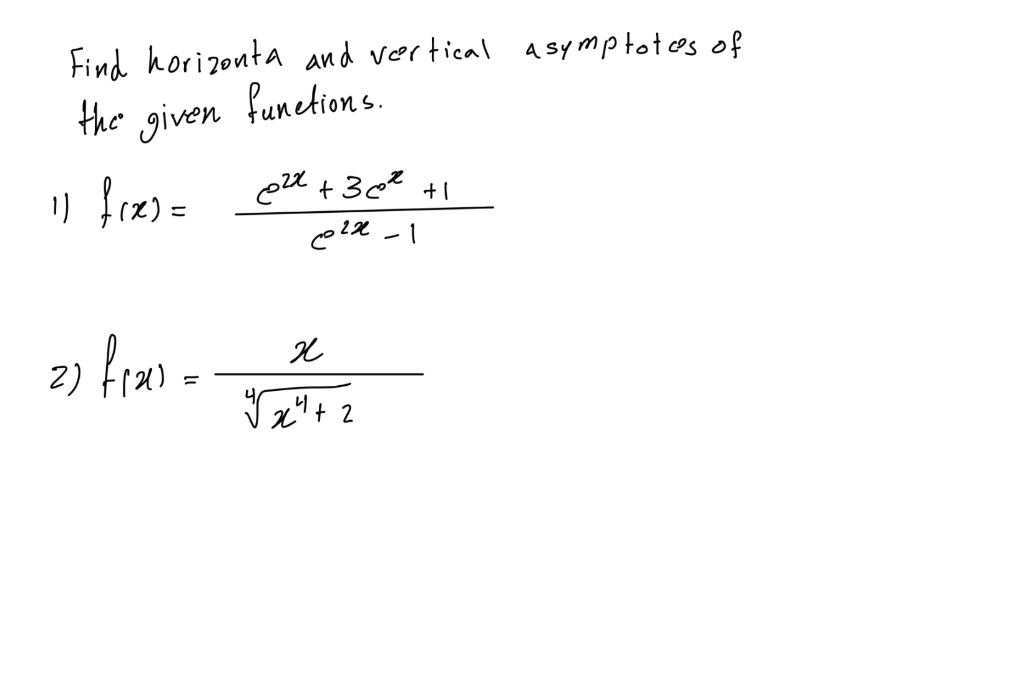 Find horizonta and vertical asymptotes of
the given functions.
1) f(x) = (e^{2x} + 3e^{x} + 1) / (e^{2x} - 1)
2) f(x) = x / ∜(x^4 + 2)